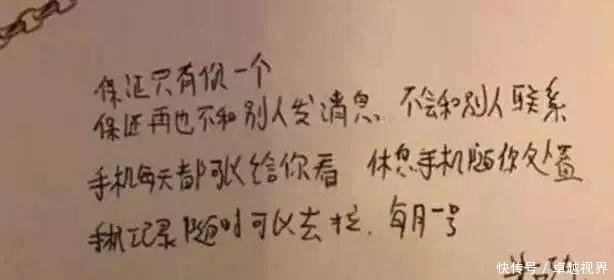 保证只有你一个
保证再也不和别人发消息 不会和别人联系
手机每天都可以给你看 休息手机随你处置
手机记录随时可以去拉.每月一号
快传号/卓越视界